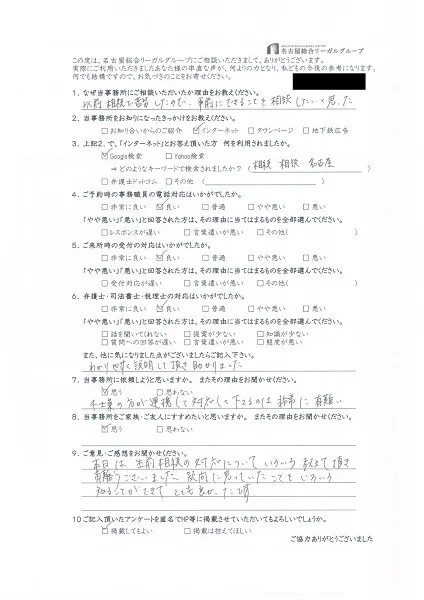 名古屋総合リーガルグループ
この度は、名古屋総合リーガルグループにご相談いただきまして、ありがとうございます。
実際にご利用いただきましたあなた様の率直な声が、何よりの力となり、私どもの今後の参考になります。
何でも結構ですので、お気づきのことをお寄せください。
1. なぜ当事務所にご相談いただいたか理由をお教えください。
以前相続で苦労したので、事前にできることを相談したいと思った
2. 当事務所をお知りになったきっかけをお教えください。
□お知り合いからのご紹介 ☑インターネット □タウンページ □地下鉄広告
3. 上記2. で、「インターネット」とお答え頂いた方 何を利用されましたか。
☑Google検索 □Yahoo検索
⇒どのようなキーワードで検索されましたか？( 相続 相談 名古屋 )
□弁護士ドットコム □その他 ( )
4. ご予約時の事務職員の電話対応はいかがでしたか。
□非常に良い ☑良い □普通 □やや悪い □悪い
「やや悪い」「悪い」と回答された方は、その理由に当てはまるものを全部選んでください。
□レスポンスが遅い □言葉遣いが悪い □その他( )
5. ご来所時の受付の対応はいかがでしたか。
□非常に良い ☑良い □普通 □やや悪い □悪い
「やや悪い」「悪い」と回答された方は、その理由に当てはまるものを全部選んでください。
□受付対応が遅い □言葉遣いが悪い □その他( )
6. 弁護士・司法書士・税理士の対応はいかがでしたか。
□非常に良い ☑良い □普通 □やや悪い □悪い
「やや悪い」「悪い」と回答された方は、その理由に当てはまるものを全部選んでください。
□話を聞いてくれない □提案が少ない □知識が少ない
□質問への回答が遅い □言葉遣いが悪い □態度が悪い
また、他に気になりました点がございましたらご記入下さい。
わかりやすく説明して頂き助かりました
7. 当事務所に依頼しようと思いますか。 またその理由をお聞かせください。
☑思う □思わない
の方が連携して対応して下さるのは非常に有難い
8. 当事務所をご家族・ご友人にすすめたいと思いますか。 またその理由をお聞かせください。
☑思う □思わない
9. ご意見・ご感想をお聞かせください。
本日は生前相続の対応について いろいろ教えて頂き
有難うございました。疑問に思っていたことを いろいろ
知ることができて とても良かったです
10 ご記入頂いたアンケートを匿名でHP等に掲載させていただいてもよろしいでしょうか。
☑掲載してもよい □掲載は控えてほしい
ご協力ありがとうございました